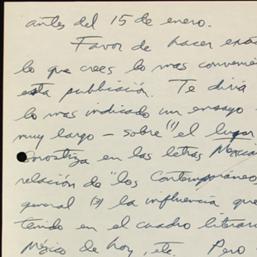 antes del 15 de enero.
Favor de hacer
lo que crees lo mas
esta publicación. Te diría
lo mas indicado un ensayo
muy largo — sobre "el lugar
en las letras
relación de "los Contemporáneos
general (2) la influencia que
tenido en el cuadro
México de hoy, etc. Pero